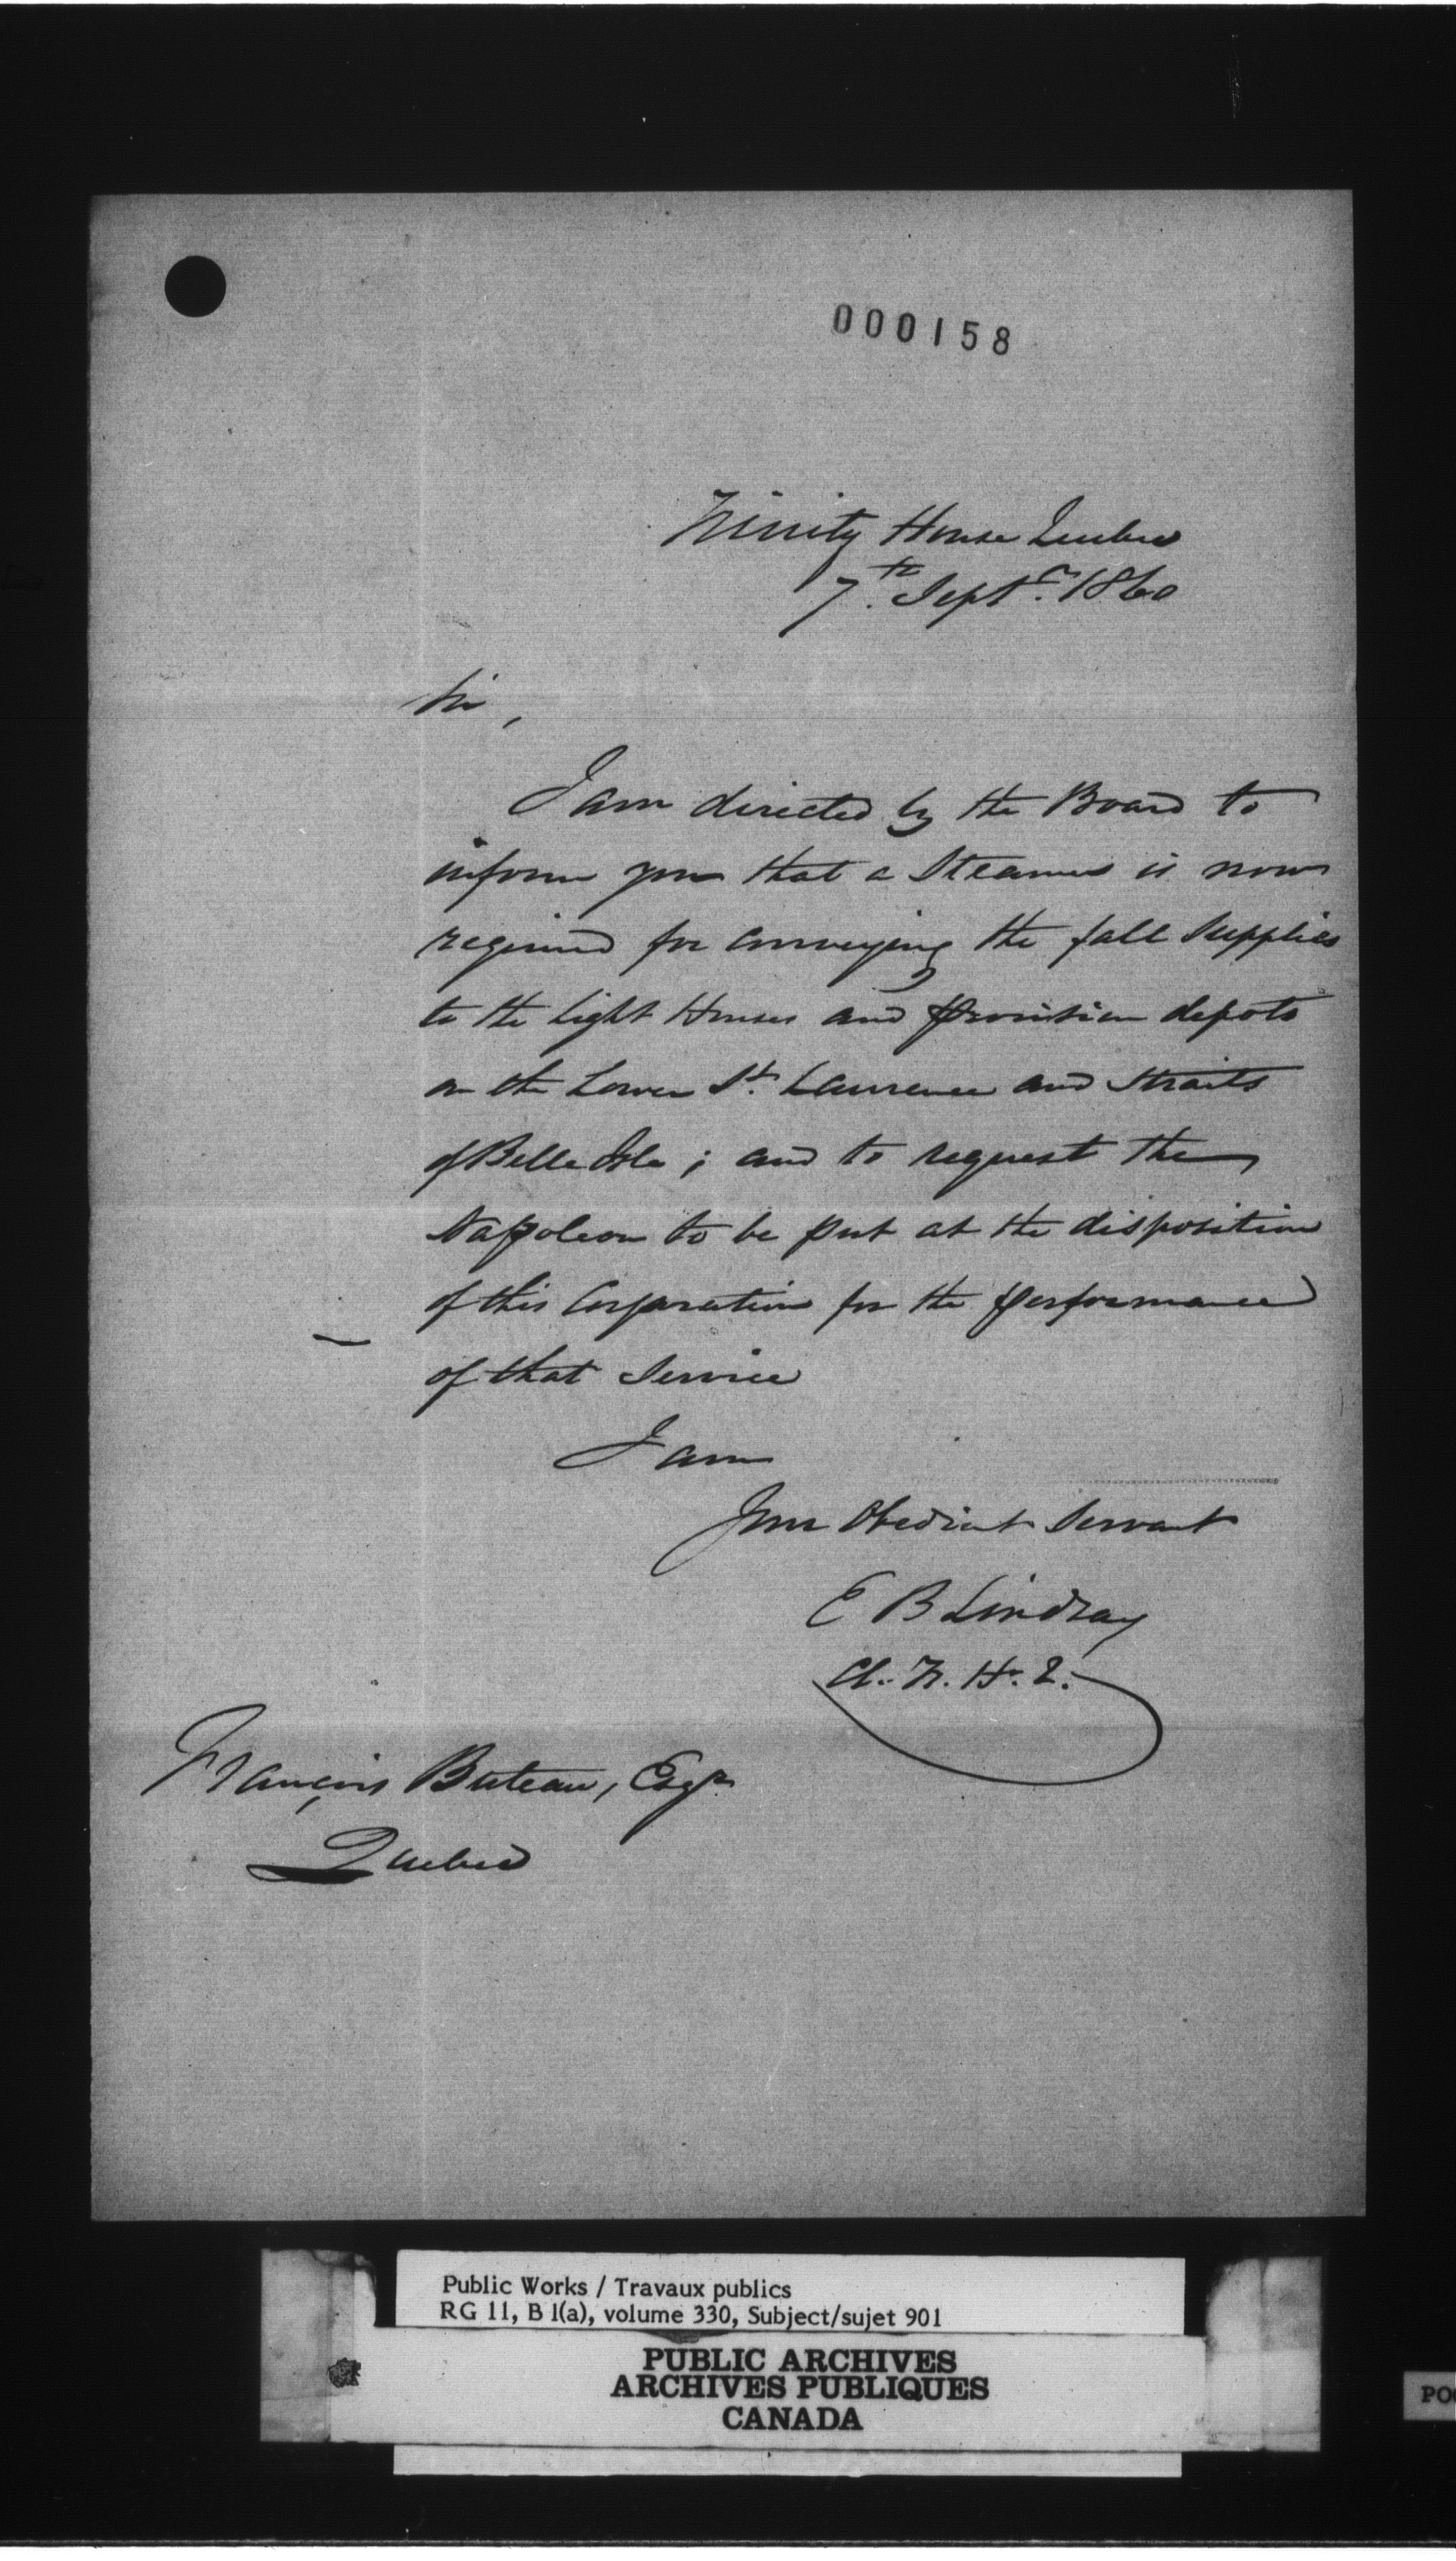 000158
Trinity House Quebec
7th Septr. 1860
Sir,
I am directed by the Board to
inform you that a Steamer is now
required for conveying the fall Supplies
to the Light Houses and Provision depots
on the Lower St. Laurence and Straits
of Belle Isle; and to request the
Napoleon to be put at the disposition
of this Corporation for the performance
of that Service
I am
Your Obedient Servant
E B Lindsay
Cl. Tr. H. Q.
François Buteau, Esqr.
Quebec
Public Works / Travaux publics
RG 11, B 1(a), volume 330, Subject/sujet 901
PUBLIC ARCHIVES
ARCHIVES PUBLIQUES
CANADA